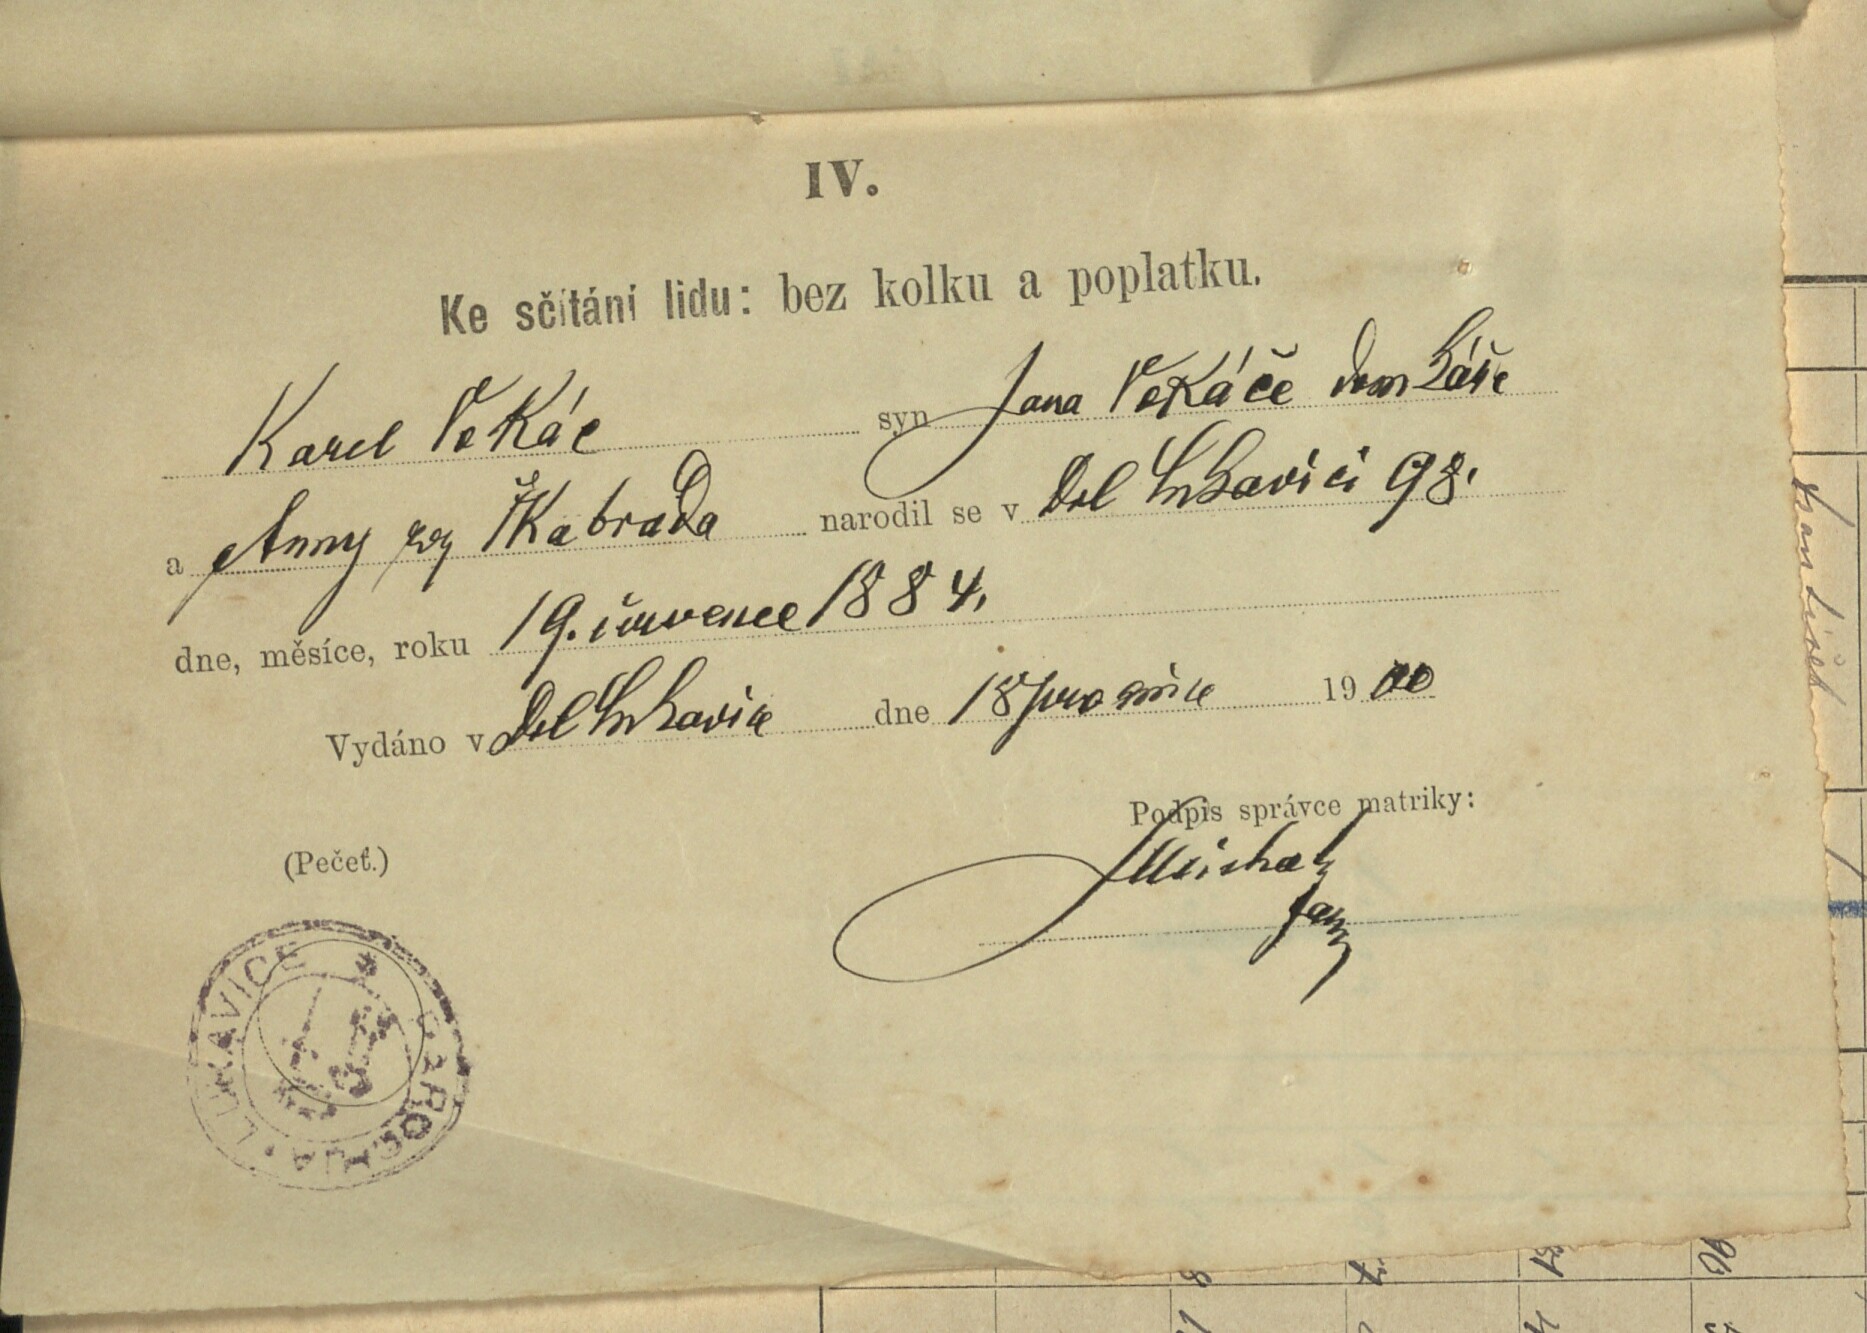 IV.
Ke sčítání lidu: bez kolku a poplatku.
Karel Vokáč syn Jana Vokáče domkáře
a Anny roz Škabrada narodil se v Dol Lukavici 98.
dne, měsíce, roku 19. července 1884.
Vydáno v Dol Lukavici dne 18 prosince 1900
Podpis správce matriky:
(Pečeť.)
LUKAVICE